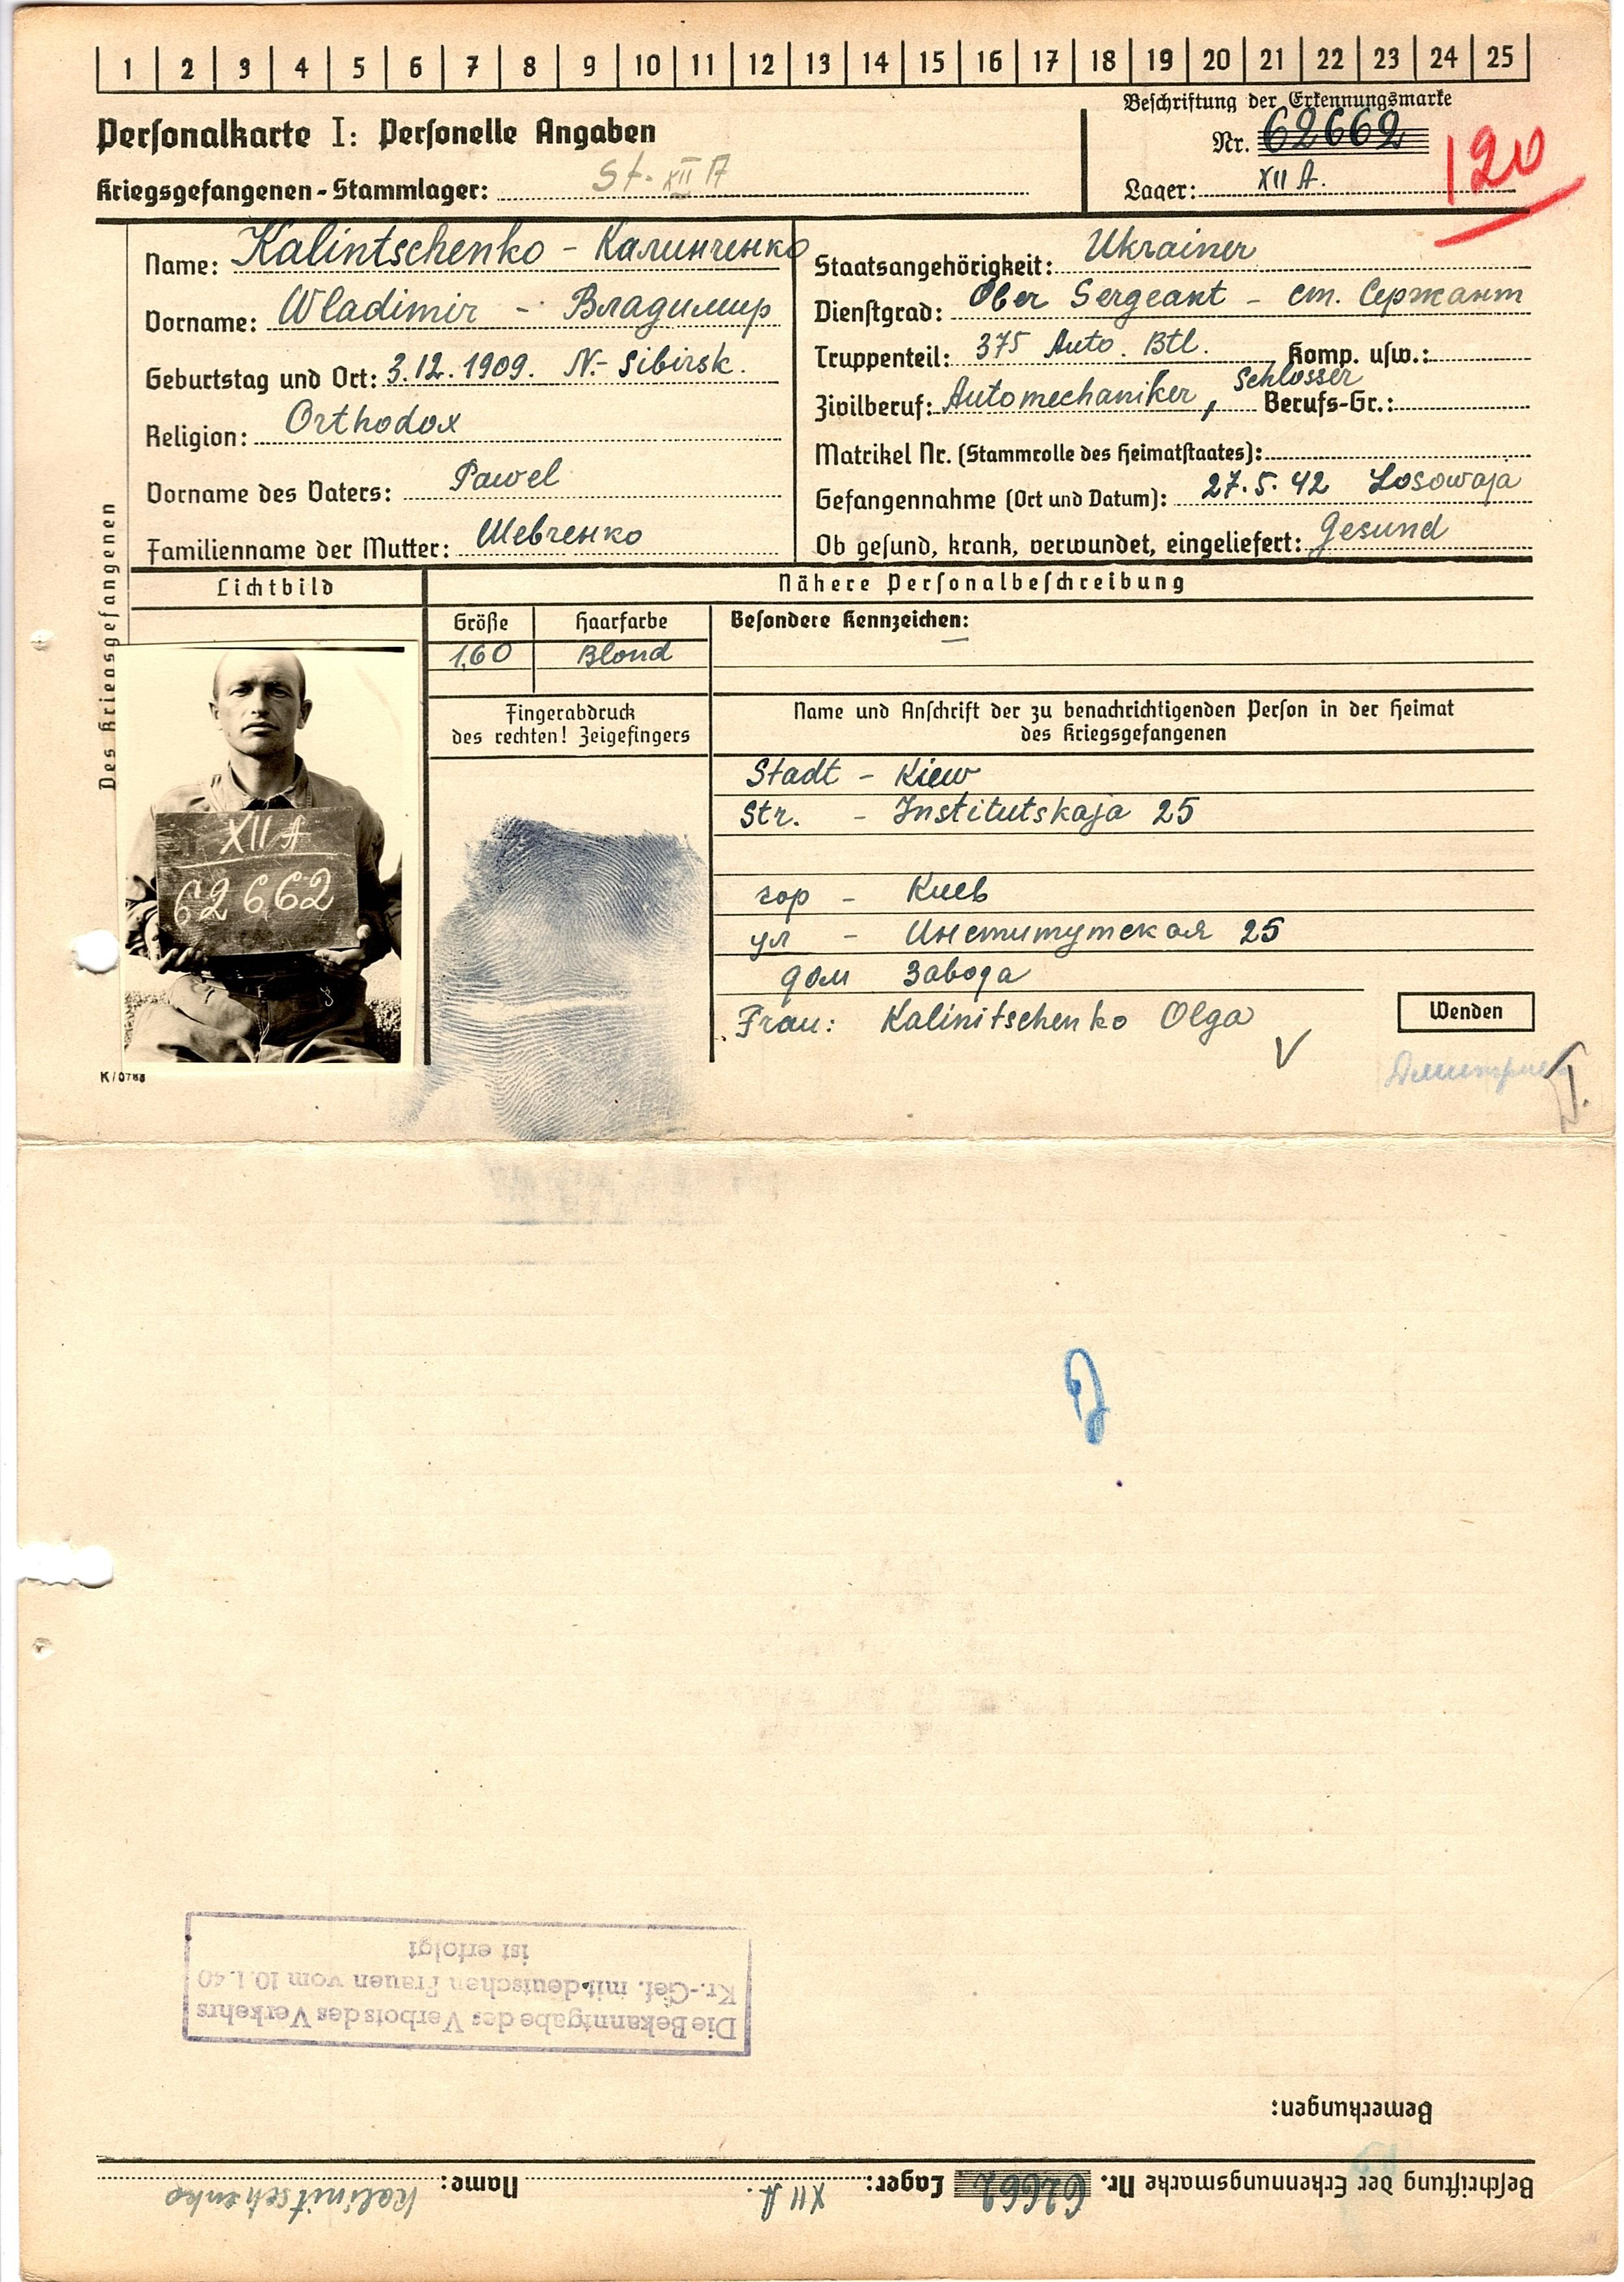 1 2 3 4 5 6 7 8 9 10 11 12 13 14 15 16 17 18 19 20 21 22 23 24 25
Personalkarte I: Personelle Angaben
Kriegsgefangenen-Stammlager: St. XII A
Beschriftung der Erkennungsmarke
Nr. 62662
Lager: XII A.
120
Des Kriegsgefangenen
Name: Kalintschenko - Калинченко
Vorname: Wladimir - Владимир
Geburtstag und Ort: 3.12.1909. N.- Sibirsk.
Religion: Orthodox
Vorname des Vaters: Pawel
Familienname der Mutter: Шевченко
Staatsangehörigkeit: Ukrainer
Dienstgrad: Ober Sergeant - ст. Сержант
Truppenteil: 375 Auto. Btl. Komp. usw.:
Zivilberuf: Automechaniker, Schlosser Berufs-Gr.:
Matrikel Nr. (Stammrolle des Heimatstaates):
Gefangennahme (Ort und Datum): 27.5.42 Losowaja
Ob gesund, krank, verwundet, eingeliefert: Gesund
Lichtbild
Nähere Personalbeschreibung
Größe Haarfarbe Besondere Kennzeichen: —
1,60 Blond
XII A
62662
Fingerabdruck
des rechten! Zeigefingers
Name und Anschrift der zu benachrichtigenden Person in der Heimat
des Kriegsgefangenen
Stadt - Kiew
Str. - Institutskaja 25
гор - Киев
ул - Институтская 25
дом завода
Frau: Kalinitschenko Olga
Wenden
K/0788
Die Bekanntgabe des Verbots des Verkehrs
Kr.-Gef. mit deutschen Frauen vom 10.1.40
ist erfolgt
Bemerkungen:
Beschriftung der Erkennungsmarke Nr. 62662 Lager: XII A. Name: Kalinitschenko